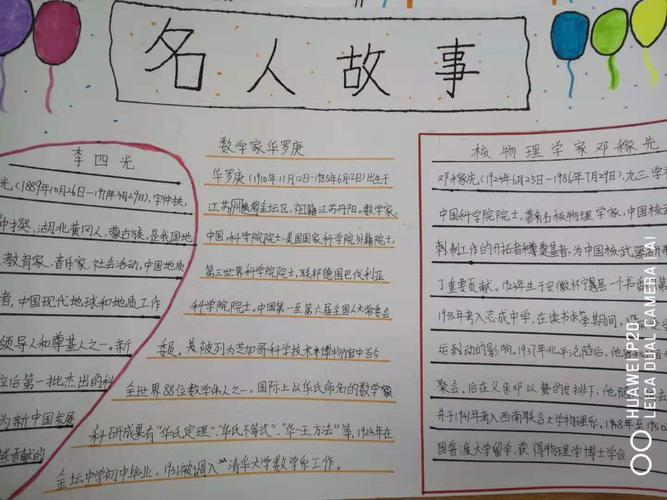 名人故事
李四光
光,(1889年10月26日-1971年4月29日),字仲拱,
仲揆,湖北黄冈人,蒙古族,是我国地
教育家、音乐家、社会活动,中国地质
者,中国现代地球和地质工作
领导人和尊基人之一。新
立后第一批杰出的科
为新中国发展
贡献的
数学家华罗庚
华罗庚(1910年11月12日-1985年6月12日)出生于
江苏金坛区,祖籍江苏丹阳。数学家,
中国科学院院士,美国国家科学院外籍院士,
第三世界科学院院士,联邦德国巴伐利亚
科学院院士。中国第一至第六届全国人大常委会
委员。被列为芝加哥科学技术博物馆中当今
全世界88位数学伟人之一。国际上以华氏命名的数学
科研成果有"华氏定理"、"华氏不等式"、"华一王方法"等,1924年在
金坛中学初中毕业,1931被调入清华大学数学系工作。
核物理学家邓稼先
邓稼先,(1924年6月25日—1986年7月29日),九三学
中国科学院院士,著名核物理学家,中国核武
制工作的开拓者和奠基者,为中国核武器
了重要贡献。1924年生于安徽怀宁县一个书香
1935年考入志成中学,在读书求学期间,
运动的影响。1937年北平沦陷后,他
聚会。后在父亲的安排下,他
并于1941年考入西南联合大学物理系。1948年至1950
国普渡大学留学,获得物理学博士学位
HUAWEI P20
LEICA DUAL CAMERA | AI